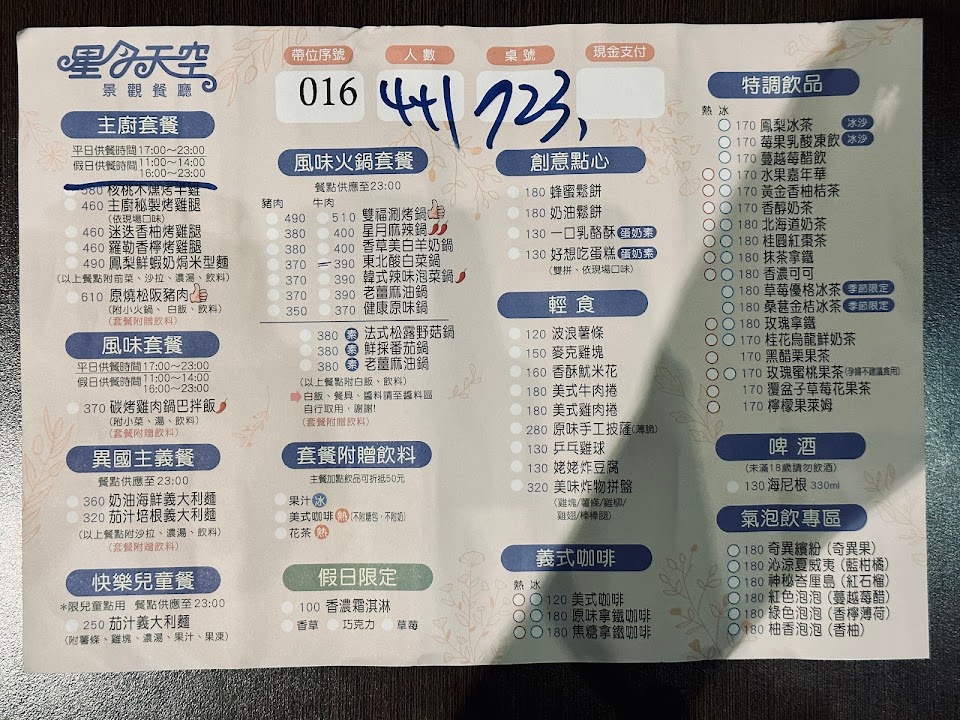 星月天空
景觀餐廳
帶位序號
016
人數
4+1
桌號
723
現金支付
主廚套餐
平日供餐時間17:00~23:00
假日供餐時間11:00~14:00
16:00~23:00
380 核桃木燻烤半雞
460 主廚秘製烤雞腿
(依現場口味)
460 迷迭香柚烤雞腿
460 羅勒香檸烤雞腿
490 鳳梨鮮蝦奶焗米型麵
(以上餐點附前菜、沙拉、濃湯、飲料)
610 原燒松阪豬肉
(附小火鍋、白飯、飲料)
(套餐附贈飲料)
風味套餐
平日供餐時間17:00~23:00
假日供餐時間11:00~14:00
16:00~23:00
370 碳烤雞肉鍋巴拌飯
(附小菜、湯、飲料)
(套餐附贈飲料)
異國主義餐
餐點供應至23:00
360 奶油海鮮義大利麵
320 茄汁培根義大利麵
(以上餐點附沙拉、濃湯、飲料)
(套餐附贈飲料)
快樂兒童餐
*限兒童點用 餐點供應至23:00
250 茄汁義大利麵
(附薯條、雞塊、濃湯、果汁、果凍)
風味火鍋套餐
餐點供應至23:00
豬肉 牛肉
490 510 雙福涮烤鍋
380 400 星月麻辣鍋
380 400 香草美白羊奶鍋
370 390 東北酸白菜鍋
370 390 韓式辣味泡菜鍋
370 390 老薑麻油鍋
350 370 健康原味鍋
380 素 法式松露野菇鍋
380 素 鮮採番茄鍋
380 素 老薑麻油鍋
(以上餐點附白飯、飲料)
白飯、餐具、醬料請至醬料區
自行取用,謝謝!
(套餐附贈飲料)
套餐附贈飲料
主餐加點飲品可折抵50元
果汁 冰
美式咖啡 熱 (不附糖包、不附奶)
花茶 熱
假日限定
100 香濃霜淇淋
香草 巧克力 草莓
創意點心
180 蜂蜜鬆餅
180 奶油鬆餅
130 一口乳酪酥 蛋奶素
130 好想吃蛋糕 蛋奶素
(雙拼、依現場口味)
輕食
120 波浪薯條
150 麥克雞塊
160 香酥魷米花
180 美式牛肉捲
180 美式雞肉捲
280 原味手工披薩(薄脆)
130 乒乓雞球
130 姥姥炸豆腐
320 美味炸物拼盤
(雞塊/薯條/雞柳/
雞翅/棒棒腿)
義式咖啡
熱 冰
120 美式咖啡
180 原味拿鐵咖啡
180 焦糖拿鐵咖啡
特調飲品
熱 冰
170 鳳梨冰茶 冰沙
170 莓果乳酸凍飲 冰沙
170 蔓越莓醋飲
170 水果嘉年華
170 黃金香柚桔茶
170 香醇奶茶
180 北海道奶茶
180 桂圓紅棗茶
180 抹茶拿鐵
180 香濃可可
180 草莓優格冰茶 季節限定
180 桑葚金桔冰茶 季節限定
180 玫瑰拿鐵
170 桂花烏龍鮮奶茶
170 黑醋栗果茶
170 玫瑰蜜桃果茶(孕婦不建議食用)
170 覆盆子草莓花果茶
170 檸檬果萊姆
啤酒
(未滿18歲請勿飲酒)
130 海尼根 330ml
氣泡飲專區
180 奇異繽紛(奇異果)
180 沁涼夏威夷(藍柑橘)
180 神秘峇厘島(紅石榴)
180 紅色泡泡(蔓越莓)
180 綠色泡泡(香檸薄荷)
180 柚香泡泡(香柚)